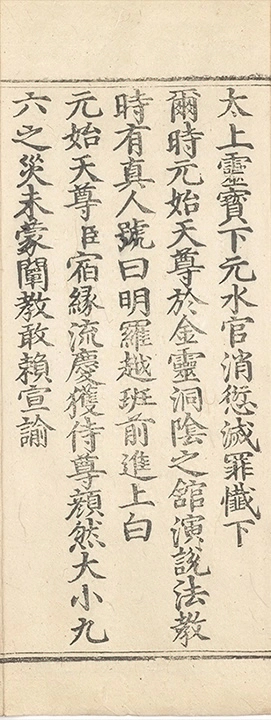 太上靈寶下元水官消愆滅罪懺下
爾時元始天尊於金靈洞陰之舘演說法教
時有真人號曰明羅越班前進上白
元始天尊臣宿緣流慶獲侍尊顔然大小九
六之災未蒙闡教敢賴宣諭